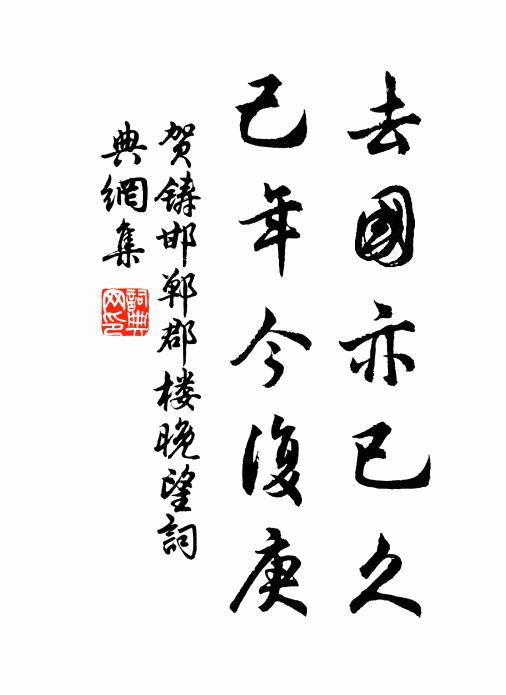 去國亦已久
己年今復庚
贺鑄邯郸郡楼晚望詞
典網集
詞典
网印